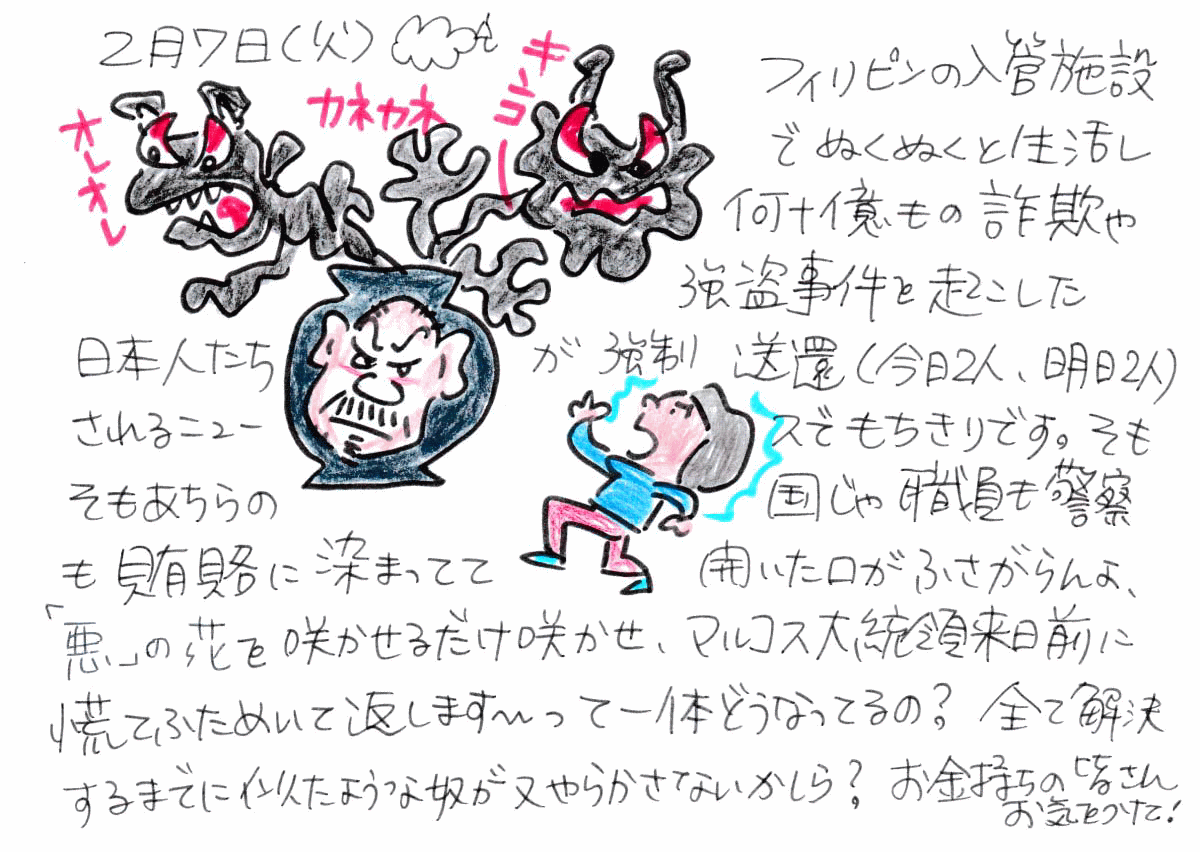 2月7日(火)
オレオレ
カネカネ
キンコー
フィリピンの入管施設
でぬくぬくと生活し
何十億もの詐欺や
強盗事件を起こした
日本人たちが強制送還(今日2人、明日2人)
されるニュースでもちきりです。そも
そもあちらの国じゃ職員も警察
も賄賂に染まってて開いた口がふさがらんよ、
「悪」の花を咲かせるだけ咲かせ、マルコス大統領来日前に
慌てふためいて返します〜って一体どうなってるの?全て解決
するまでに似たような奴が又やらかさないかしら?お金持ちの皆さん
お気をつけて!